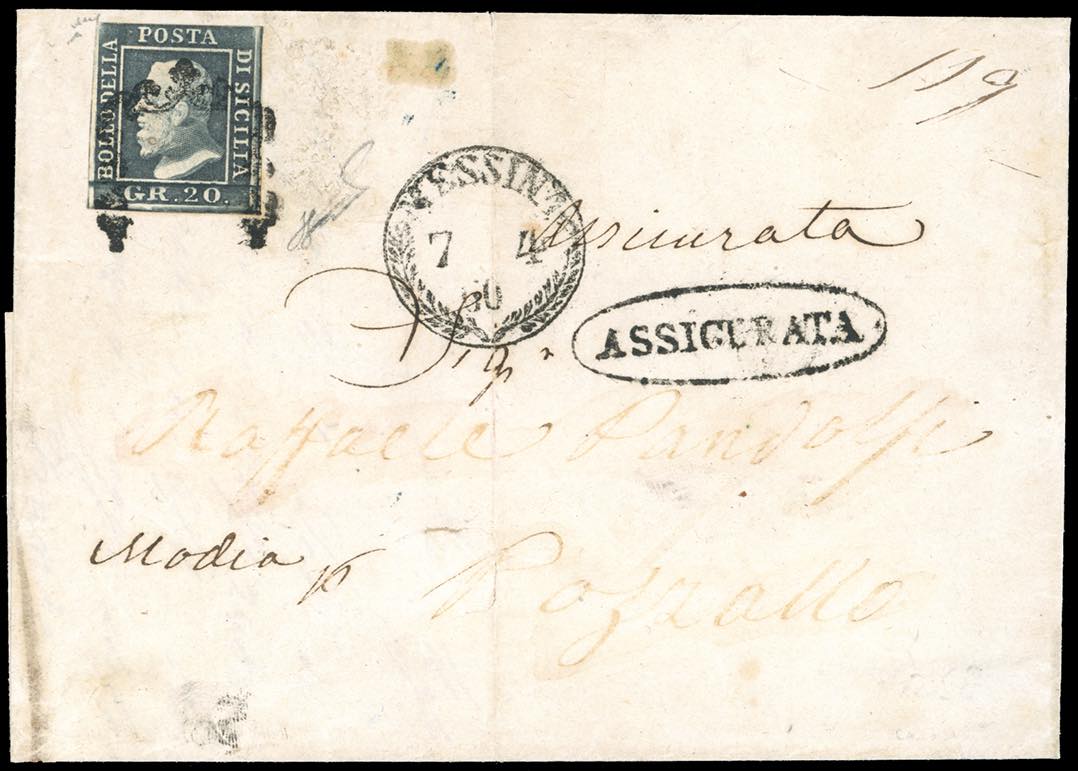 POSTA
BOLLO DELLA
DI SICILIA
GR. 20.
119
MESSINA
7 4
60
Assicurata
ASSICURATA
Sigr
Raffaele Pandolfi
Modica p
Pozzallo